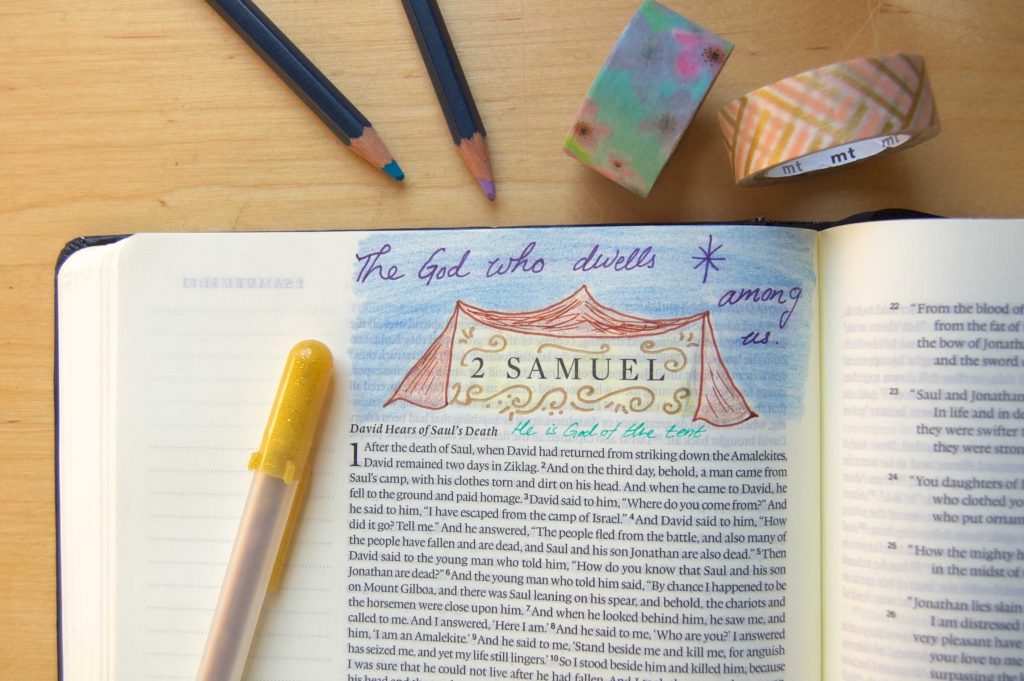 mt mt mt
The God who dwells
among
us.
2 SAMUEL
David Hears of Saul's Death He is God of the tent
1 After the death of Saul, when David had returned from striking down the Amalekites,
David remained two days in Ziklag. 2 And on the third day, behold, a man came from
Saul's camp, with his clothes torn and dirt on his head. And when he came to David, he
fell to the ground and paid homage. 3 David said to him, “Where do you come from?” And
he said to him, “I have escaped from the camp of Israel.” 4 And David said to him, “How
did it go? Tell me.” And he answered, “The people fled from the battle, and also many of
the people have fallen and are dead, and Saul and his son Jonathan are also dead.” 5 Then
David said to the young man who told him, “How do you know that Saul and his son
Jonathan are dead?” 6 And the young man who told him said, “By chance I happened to be
on Mount Gilboa, and there was Saul leaning on his spear, and behold, the chariots and
the horsemen were close upon him. 7 And when he looked behind him, he saw me, and
called to me. And I answered, ‘Here I am.’ 8 And he said to me, ‘Who are you?’ I answered
him, ‘I am an Amalekite.’ 9 And he said to me, ‘Stand beside me and kill me, for anguish
has seized me, and yet my life still lingers.’ 10 So I stood beside him and killed him, because
I was sure that he could not live after he had fallen. And I
22 “From the blood of
from the fat of
the bow of Jonath
and the sword
23 “Saul and Jonathan
In life and in de
they were swifter
they were stron
24 “You daughters of
who clothed yo
who put ornam
25 “How the mighty h
in the midst of
“Jonathan lies slain
26 I am distressed
very pleasant have
your love to me
surpassing the